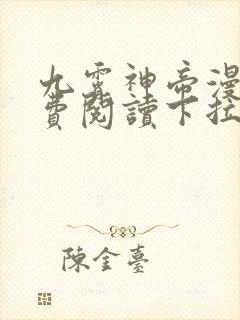 九霄神帝漫
費閱讀下拉
陳金臺